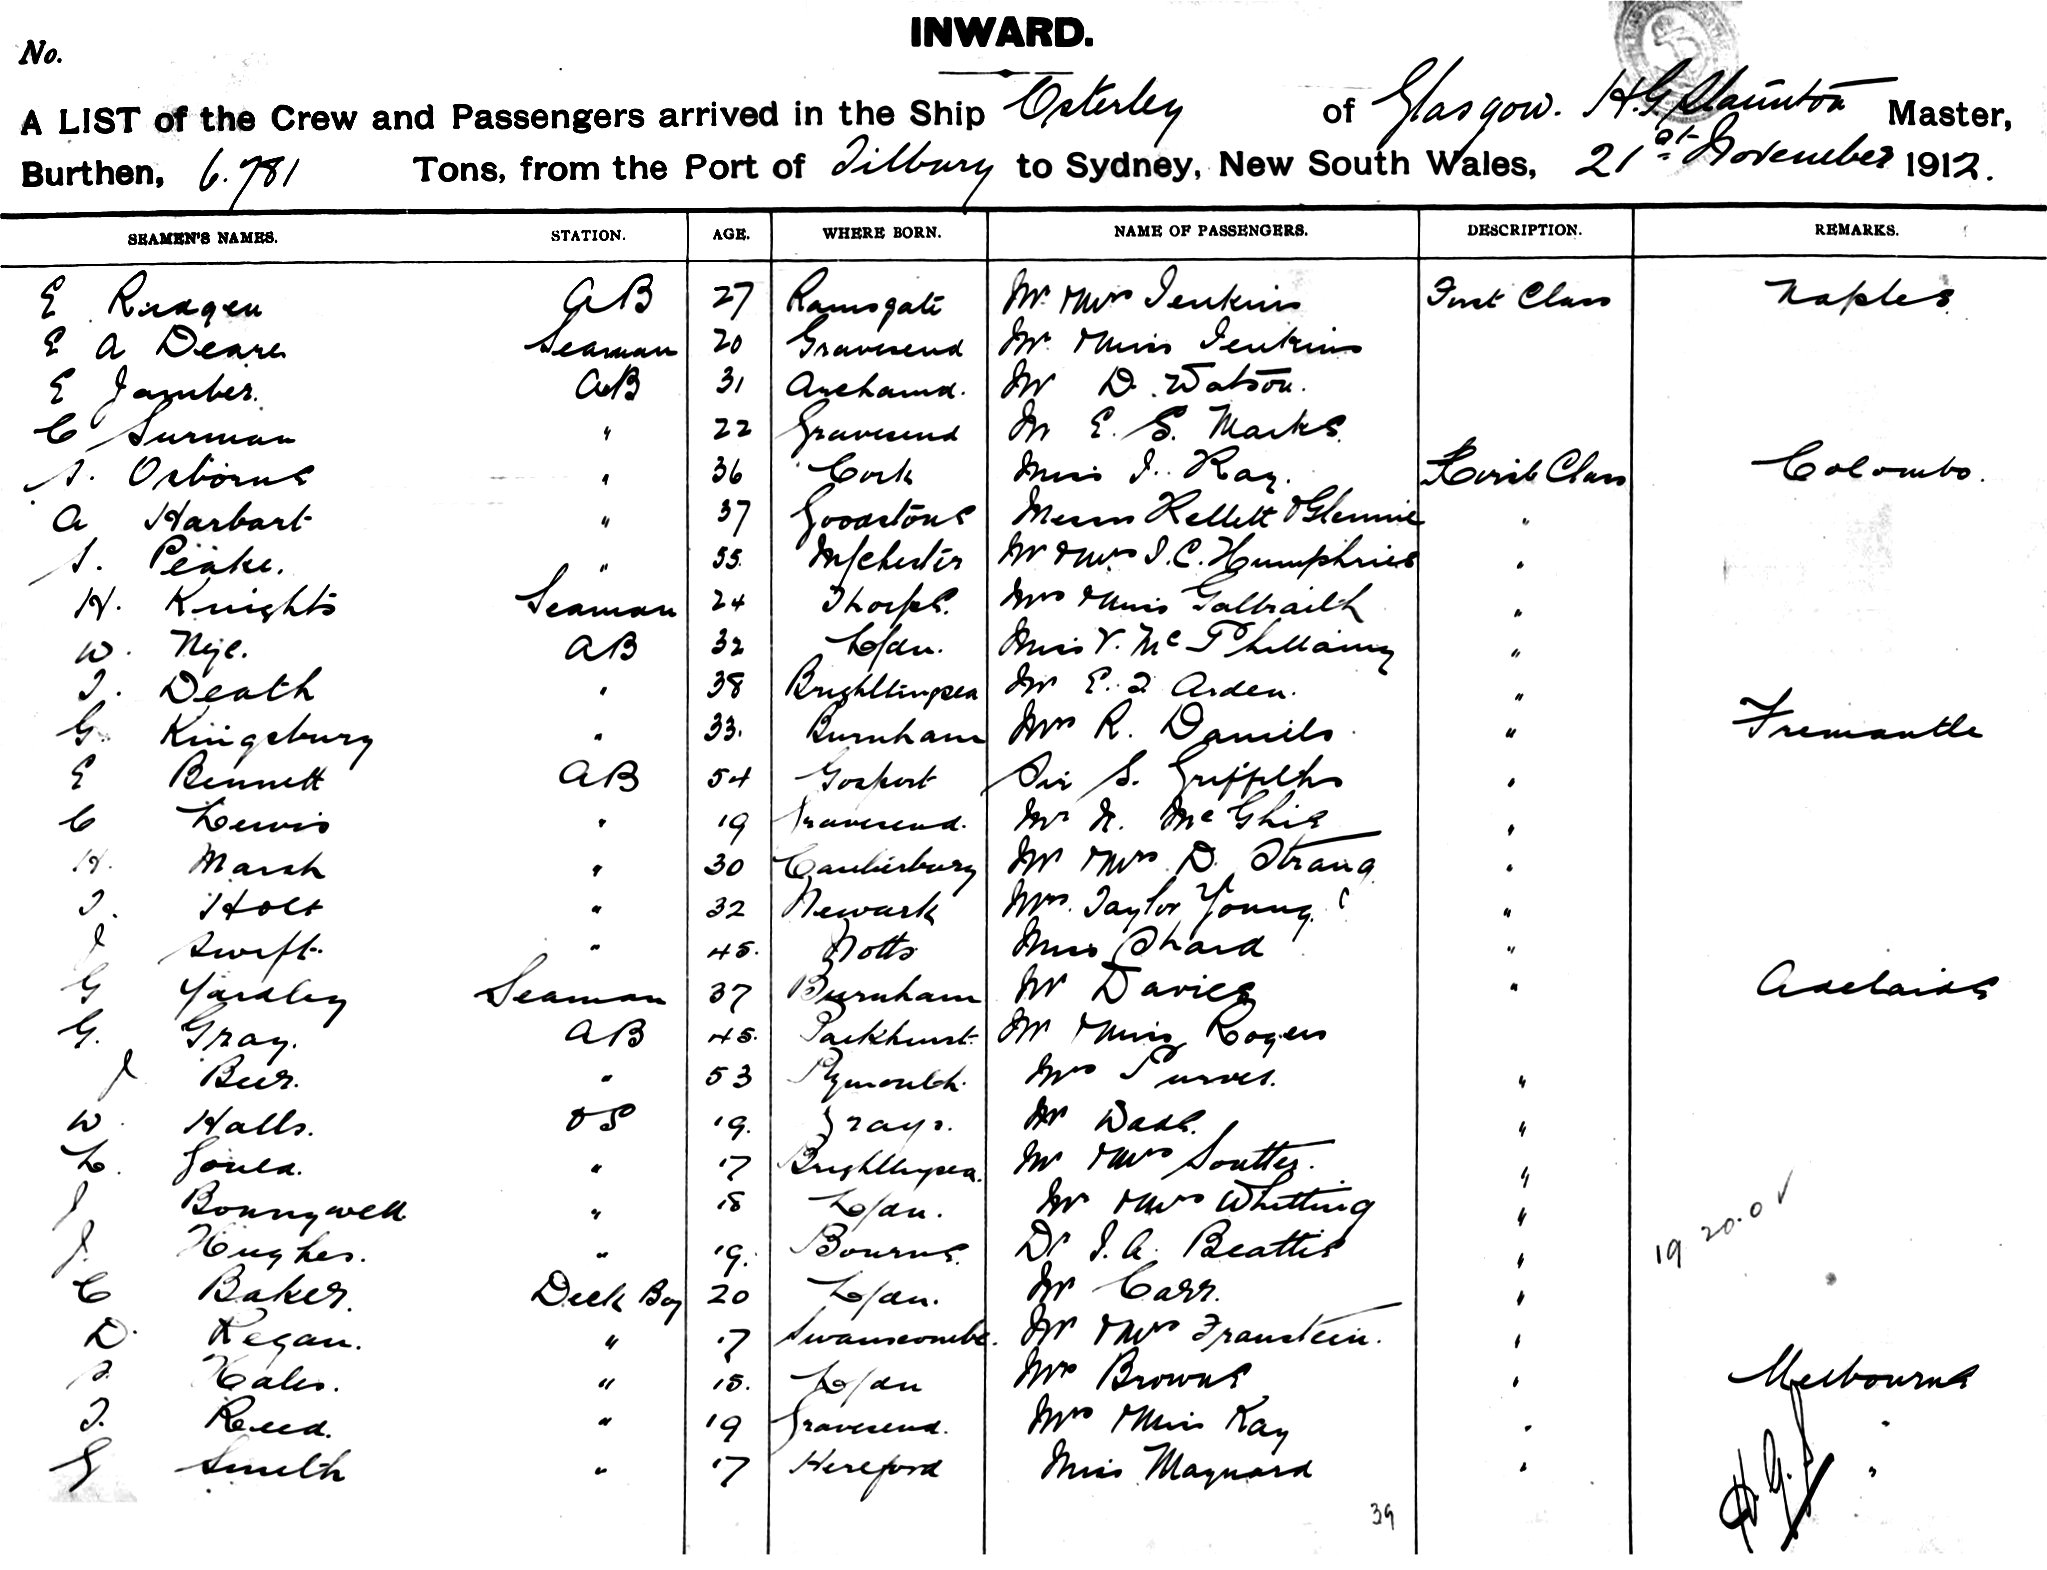 INWARD.
No.
A LIST of the Crew and Passengers arrived in the Ship Osterley of Glasgow. H.G. Staunton Master,
Burthen, 6.781 Tons, from the Port of Tilbury to Sydney, New South Wales, 21st November 1912.
SEAMEN'S NAMES. STATION. AGE. WHERE BORN. NAME OF PASSENGERS. DESCRIPTION. REMARKS.
E AB 27 Ramsgate Mr & Mrs Jenkins First Class Naples
E A Deare Seaman 20 Gravesend Mr & Miss Jenkins
E Jamber. AB 31 Mr D. Watson.
C Surman " 22 Gravesend Mr E. S. Marks.
S. Osborne " 36 Cork Miss J. Kay. First Class Colombo.
A Harbart " 37 Goodstone Messrs Kellett & Glennie "
S. Peake. " 55. M/chester Mr & Mrs J. C. Humphries "
H. Knights Seaman 24 Thorpe. Mrs & Miss Galbraith "
W. Nye. AB 32 L/dn. Miss V. Mc Phillamy "
T. Death " 38 Brightlingsea Mr E. J. Arden. "
G. Kingsbury " 33. Burnham Mrs R. Daniels " Fremantle
E Bennett AB 54 Gosport Sir S. Griffiths "
C Lewis " 19 Gravesend. Mr N. McGhie "
H. Marsh " 30 Canterbury Mr & Mrs D. Strang "
T. Holt " 32 Newark Mrs. Taylor Young. "
J Swift. " 45. Notts Miss Chard "
G Yardley Seaman 37 Burnham Mr Davies " Adelaide
G. Gray. AB 45. Parkhurst. Mr & Miss Rogers
J Beer. " 53 Plymouth. Mrs Purves. "
W. Halls. OS 19. Grays. Mr Dade. "
L. Gould. " 17 Brightlingsea. Mr & Mrs Soutter. "
J Bonnywell " 18 L/dn. Mr & Mrs Whitting "
J. Hughes. " 19. Bourne. Dr J. A. Beattie " 19 20.0 ✓
C Baker. Deck Boy 20 L/dn. Mr Carr. "
D. Regan. " 17 Swanscombe. Mr & Mrs Franstein. "
S. Hales. " 15. L/dn Mrs Browne " Melbourne
T. Reed. " 19 Gravesend. Mrs & Miss Kay " "
G Smith " 17 Hereford Miss Maynard " "
39
H.G.S